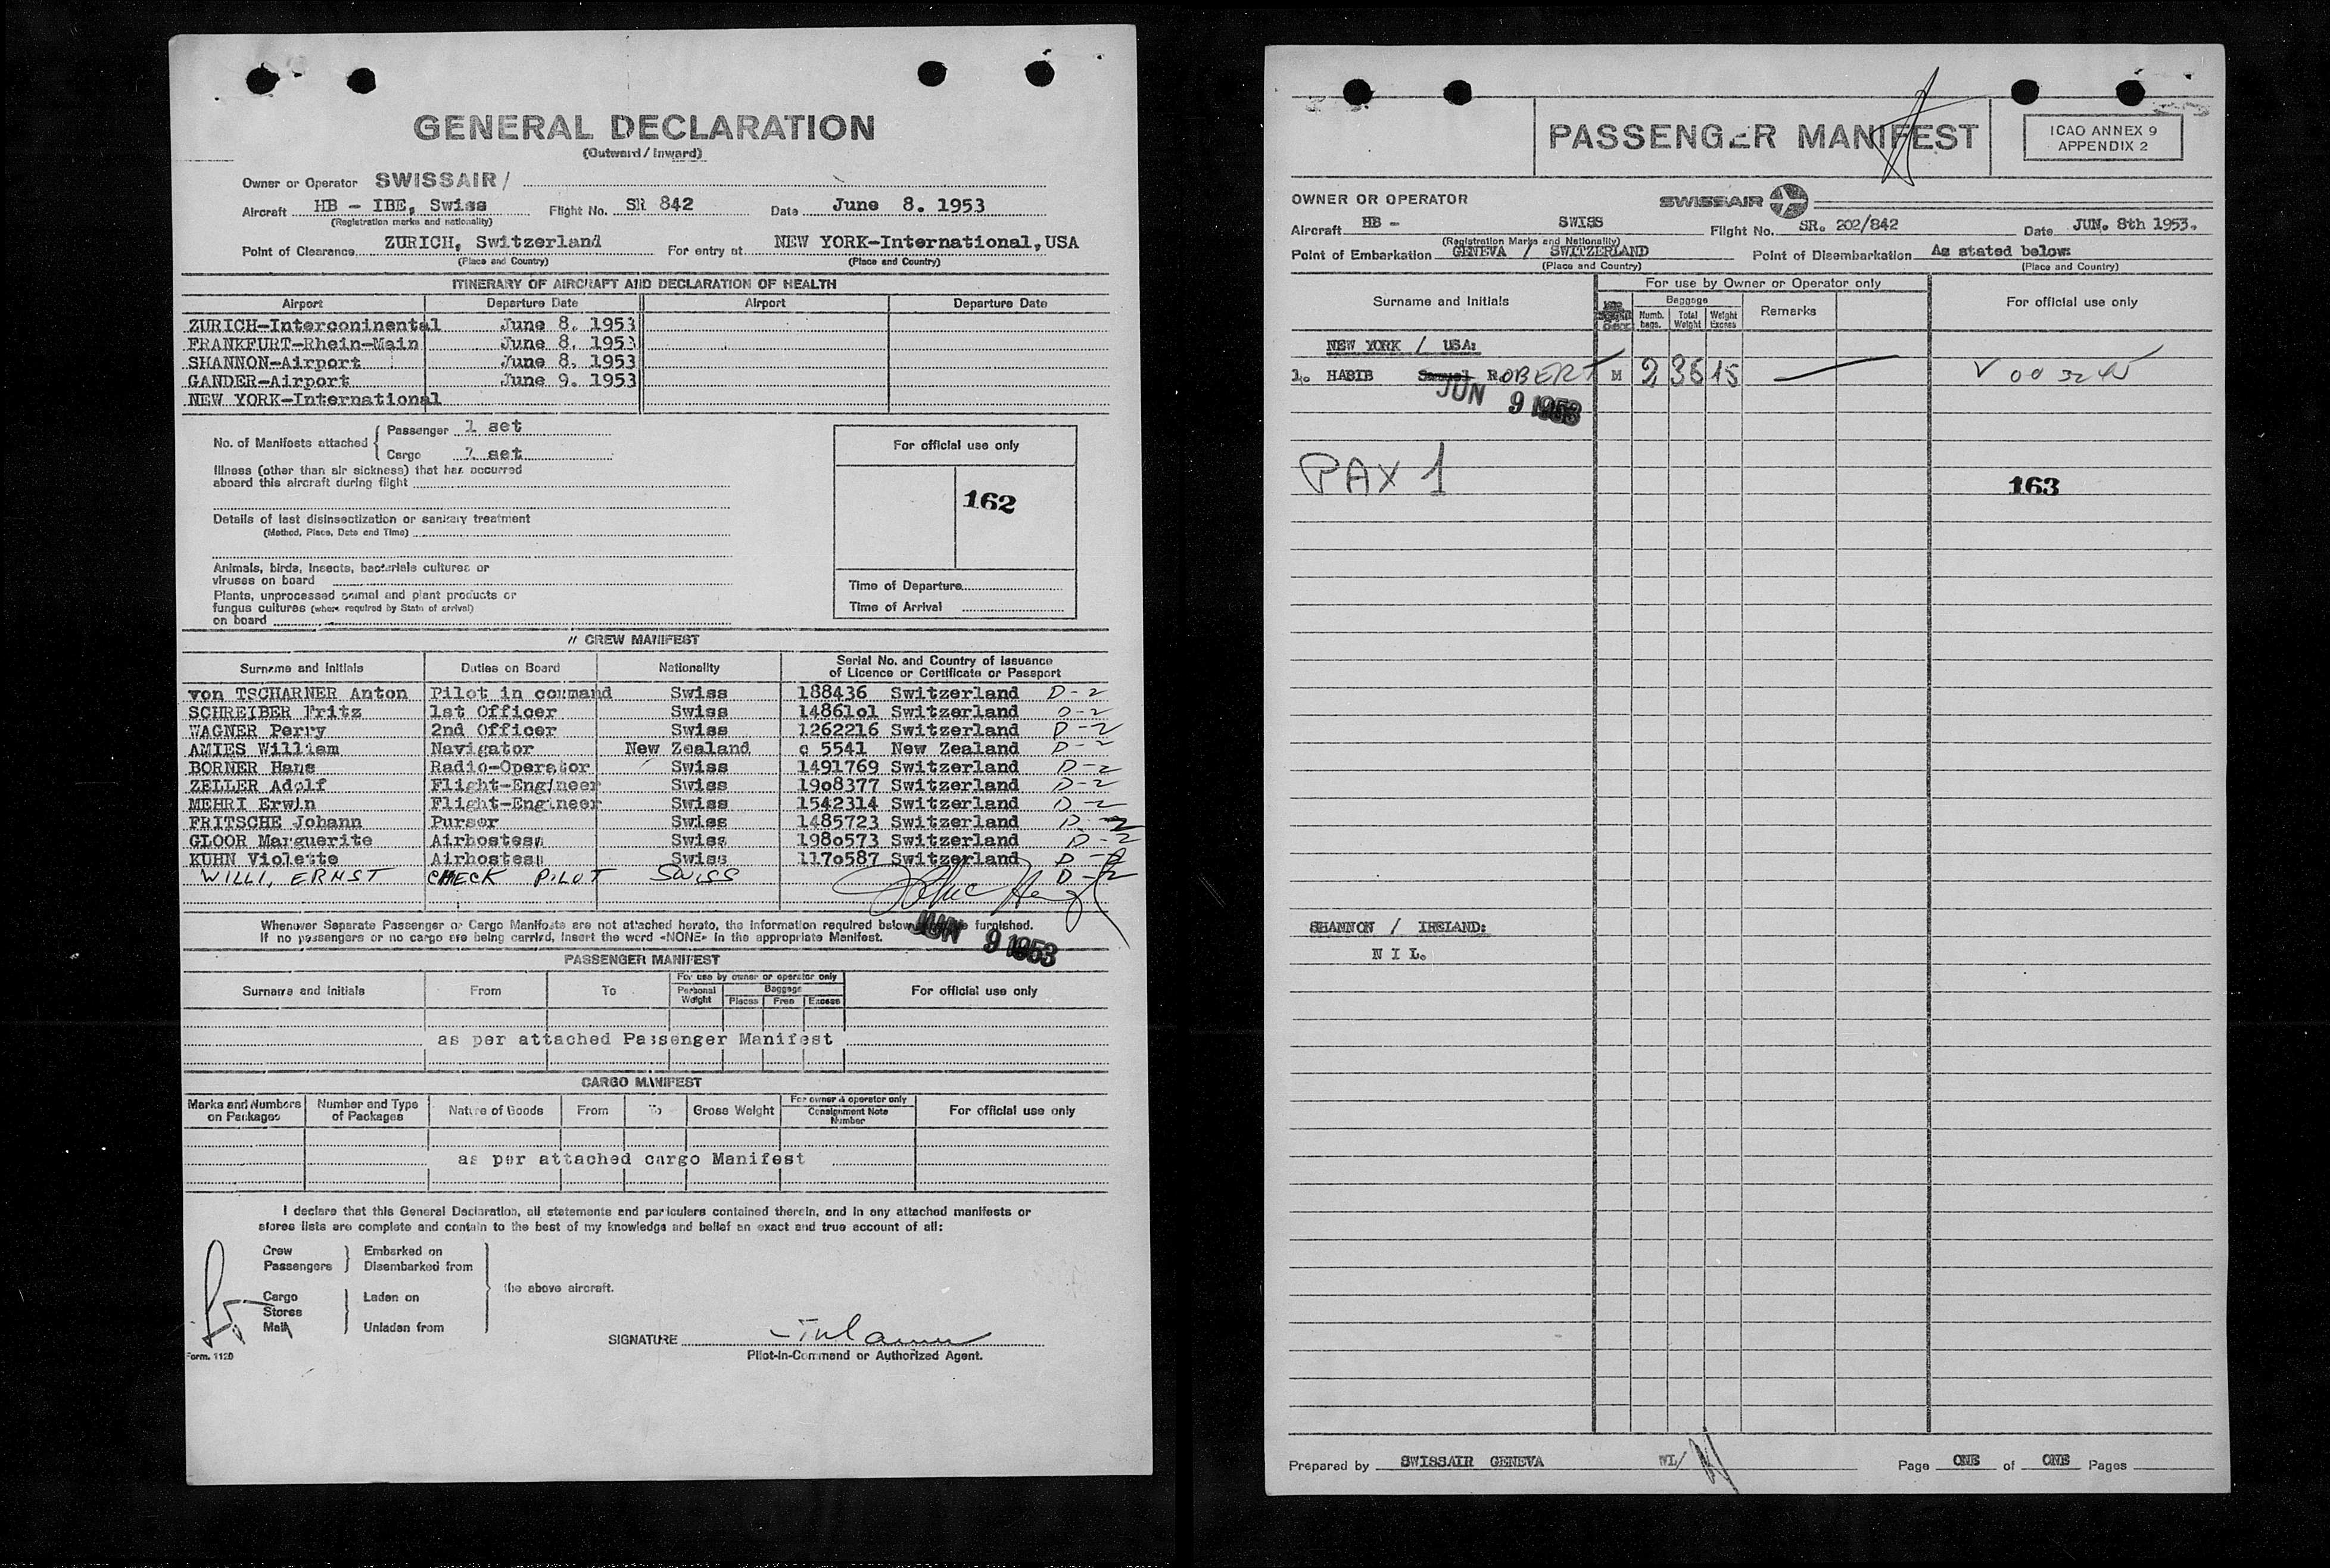 GENERAL DECLARATION
(Outward / Inward)
Owner or Operator SWISSAIR /
Aircraft HB - IBE, Swiss Flight No. SR 842 Date June 8. 1953
(Registration marks and nationality)
Point of Clearance ZURICH, Switzerland For entry at NEW YORK-International, USA
(Place and Country) (Place and Country)
ITINERARY OF AIRCRAFT AND DECLARATION OF HEALTH
Airport Departure Date Airport Departure Date
ZURICH-Interconinental June 8. 1953
FRANKFURT-Rhein-Main June 8. 1953
SHANNON-Airport June 8. 1953
GANDER-Airport June 9. 1953
NEW YORK-International
No. of Manifests attached { Passenger 1 set
Cargo 1 set
Illness (other than air sickness) that has occurred
aboard this aircraft during flight
Details of last disinsectization or sanitary treatment
(Method, Place, Date and Time)
Animals, birds, insects, bacterials cultures or
viruses on board
Plants, unprocessed animal and plant products or
fungus cultures (where required by State of arrival)
on board
For official use only
162
Time of Departure
Time of Arrival
" CREW MANIFEST
Surname and Initials Duties on Board Nationality Serial No. and Country of Issuance
of Licence or Certificate or Passport
von TSCHARNER Anton Pilot in command Swiss 188436 Switzerland D-2
SCHREIBER Fritz 1st Officer Swiss 1486lol Switzerland D-2
WAGNER Perry 2nd Officer Swiss 1262216 Switzerland D-2
AMIES William Navigator New Zealand c 5541 New Zealand D-2
BORNER Hans Radio-Operator Swiss 1491769 Switzerland D-2
ZELLER Adolf Flight-Engineer Swiss 19o8377 Switzerland D-2
MEHRI Erwin Flight-Engineer Swiss 1542314 Switzerland D-2
FRITSCHE Johann Purser Swiss 1485723 Switzerland D-2
GLOOR Marguerite Airhostess Swiss 198o573 Switzerland D-2
KUHN Violette Airhostess Swiss 117o587 Switzerland D-2
WILLI, ERNST CHECK PILOT SWISS D-2
Whenever Separate Passenger or Cargo Manifests are not attached hereto, the information required below furnished.
If no passengers or no cargo are being carried, insert the word «NONE» in the appropriate Manifest.
JUN 9 1953
PASSENGER MANIFEST
Surname and Initials From To For use by owner or operator only For official use only
Personal Weight Baggage
Pieces Free Excess
as per attached Passenger Manifest
CARGO MANIFEST
Marks and Numbers on Packages Number and Type of Packages Nature of Goods From To Gross Weight For owner & operator only For official use only
Consignment Note Number
as per attached cargo Manifest
I declare that this General Declaration, all statements and pariculers contained therein, and in any attached manifests or
stores lists are complete and contain to the best of my knowledge and belief an exact and true account of all:
Crew } Embarked on
Passengers } Disembarked from
the above aircraft.
Cargo } Laden on
Stores
Mail } Unladen from
SIGNATURE
Pilot-in-Command or Authorized Agent.
Form. 1120
PASSENGER MANIFEST
ICAO ANNEX 9
APPENDIX 2
OWNER OR OPERATOR SWISSAIR
Aircraft HB - SWISS Flight No. SR. 202/842 Date JUN. 8th 1953.
(Registration Marks and Nationality)
Point of Embarkation GENEVA / SWITZERLAND Point of Disembarkation As stated below:
(Place and Country) (Place and Country)
Surname and Initials For use by Owner or Operator only For official use only
Baggage Remarks
Numb. bags. Total Weight Weight Excess
NEW YORK / USA:
1. HABIB Samuel ROBERT M 2 35 15
JUN 9 1953
PAX 1
163
SHANNON / IRELAND:
N I L.
Prepared by SWISSAIR GENEVA WL/ Page ONE of ONE Pages